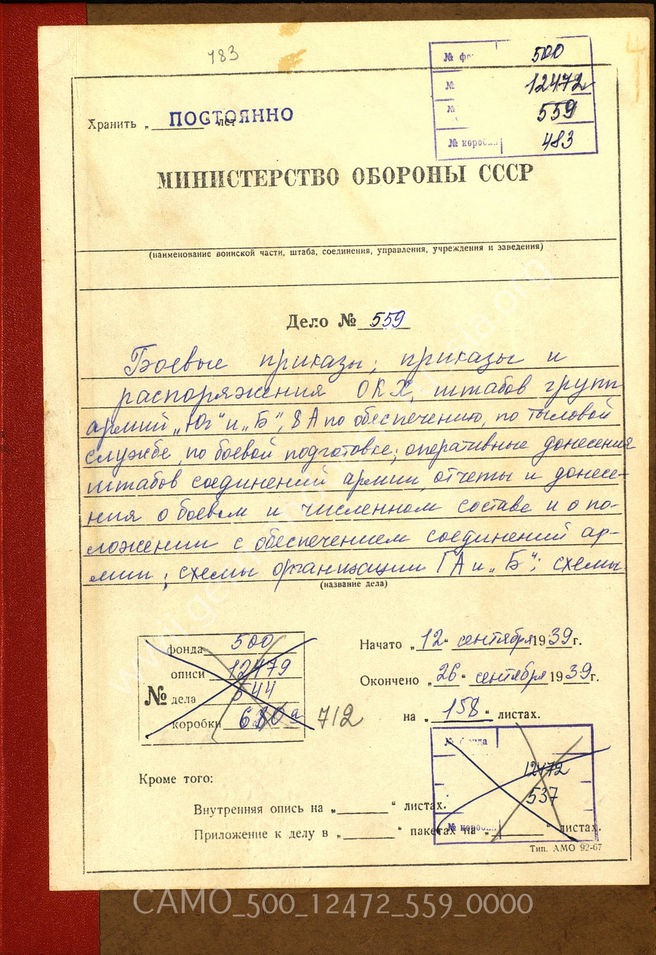 483
№ 500
№ 12472
№ 559
№ коробки 483
Хранить „ ПОСТОЯННО лет
МИНИСТЕРСТВО ОБОРОНЫ СССР
(наименование воинской части, штаба, соединения, управления, учреждения и заведения)
Дело № 559
Боевые приказы; приказы и
распоряжения ОКХ, штабов групп
армий „Юг" и „Б", 8А по обеспечению, по тыловой
службе, по боевой подготовке; оперативные донесения
штабов соединений армии отчеты и донесе-
ния о боевом и численном составе и о по-
ложении с обеспечением соединений ар-
мии; схемы организации ГА и „Б"; схемы
(название дела)
№
фонда 500
описи 12479
дела 544
коробки 680а
712
Начато „12" сентября 1939г.
Окончено „26" сентября 1939г.
на „158" листах.
№ фонда
12472
537
№ коробки
Кроме того:
Внутренняя опись на „ " листах.
Приложение к делу в „ " пакетах на „ " листах.
Тип. АМО 92-67
CAMO_500_12472_559_0000